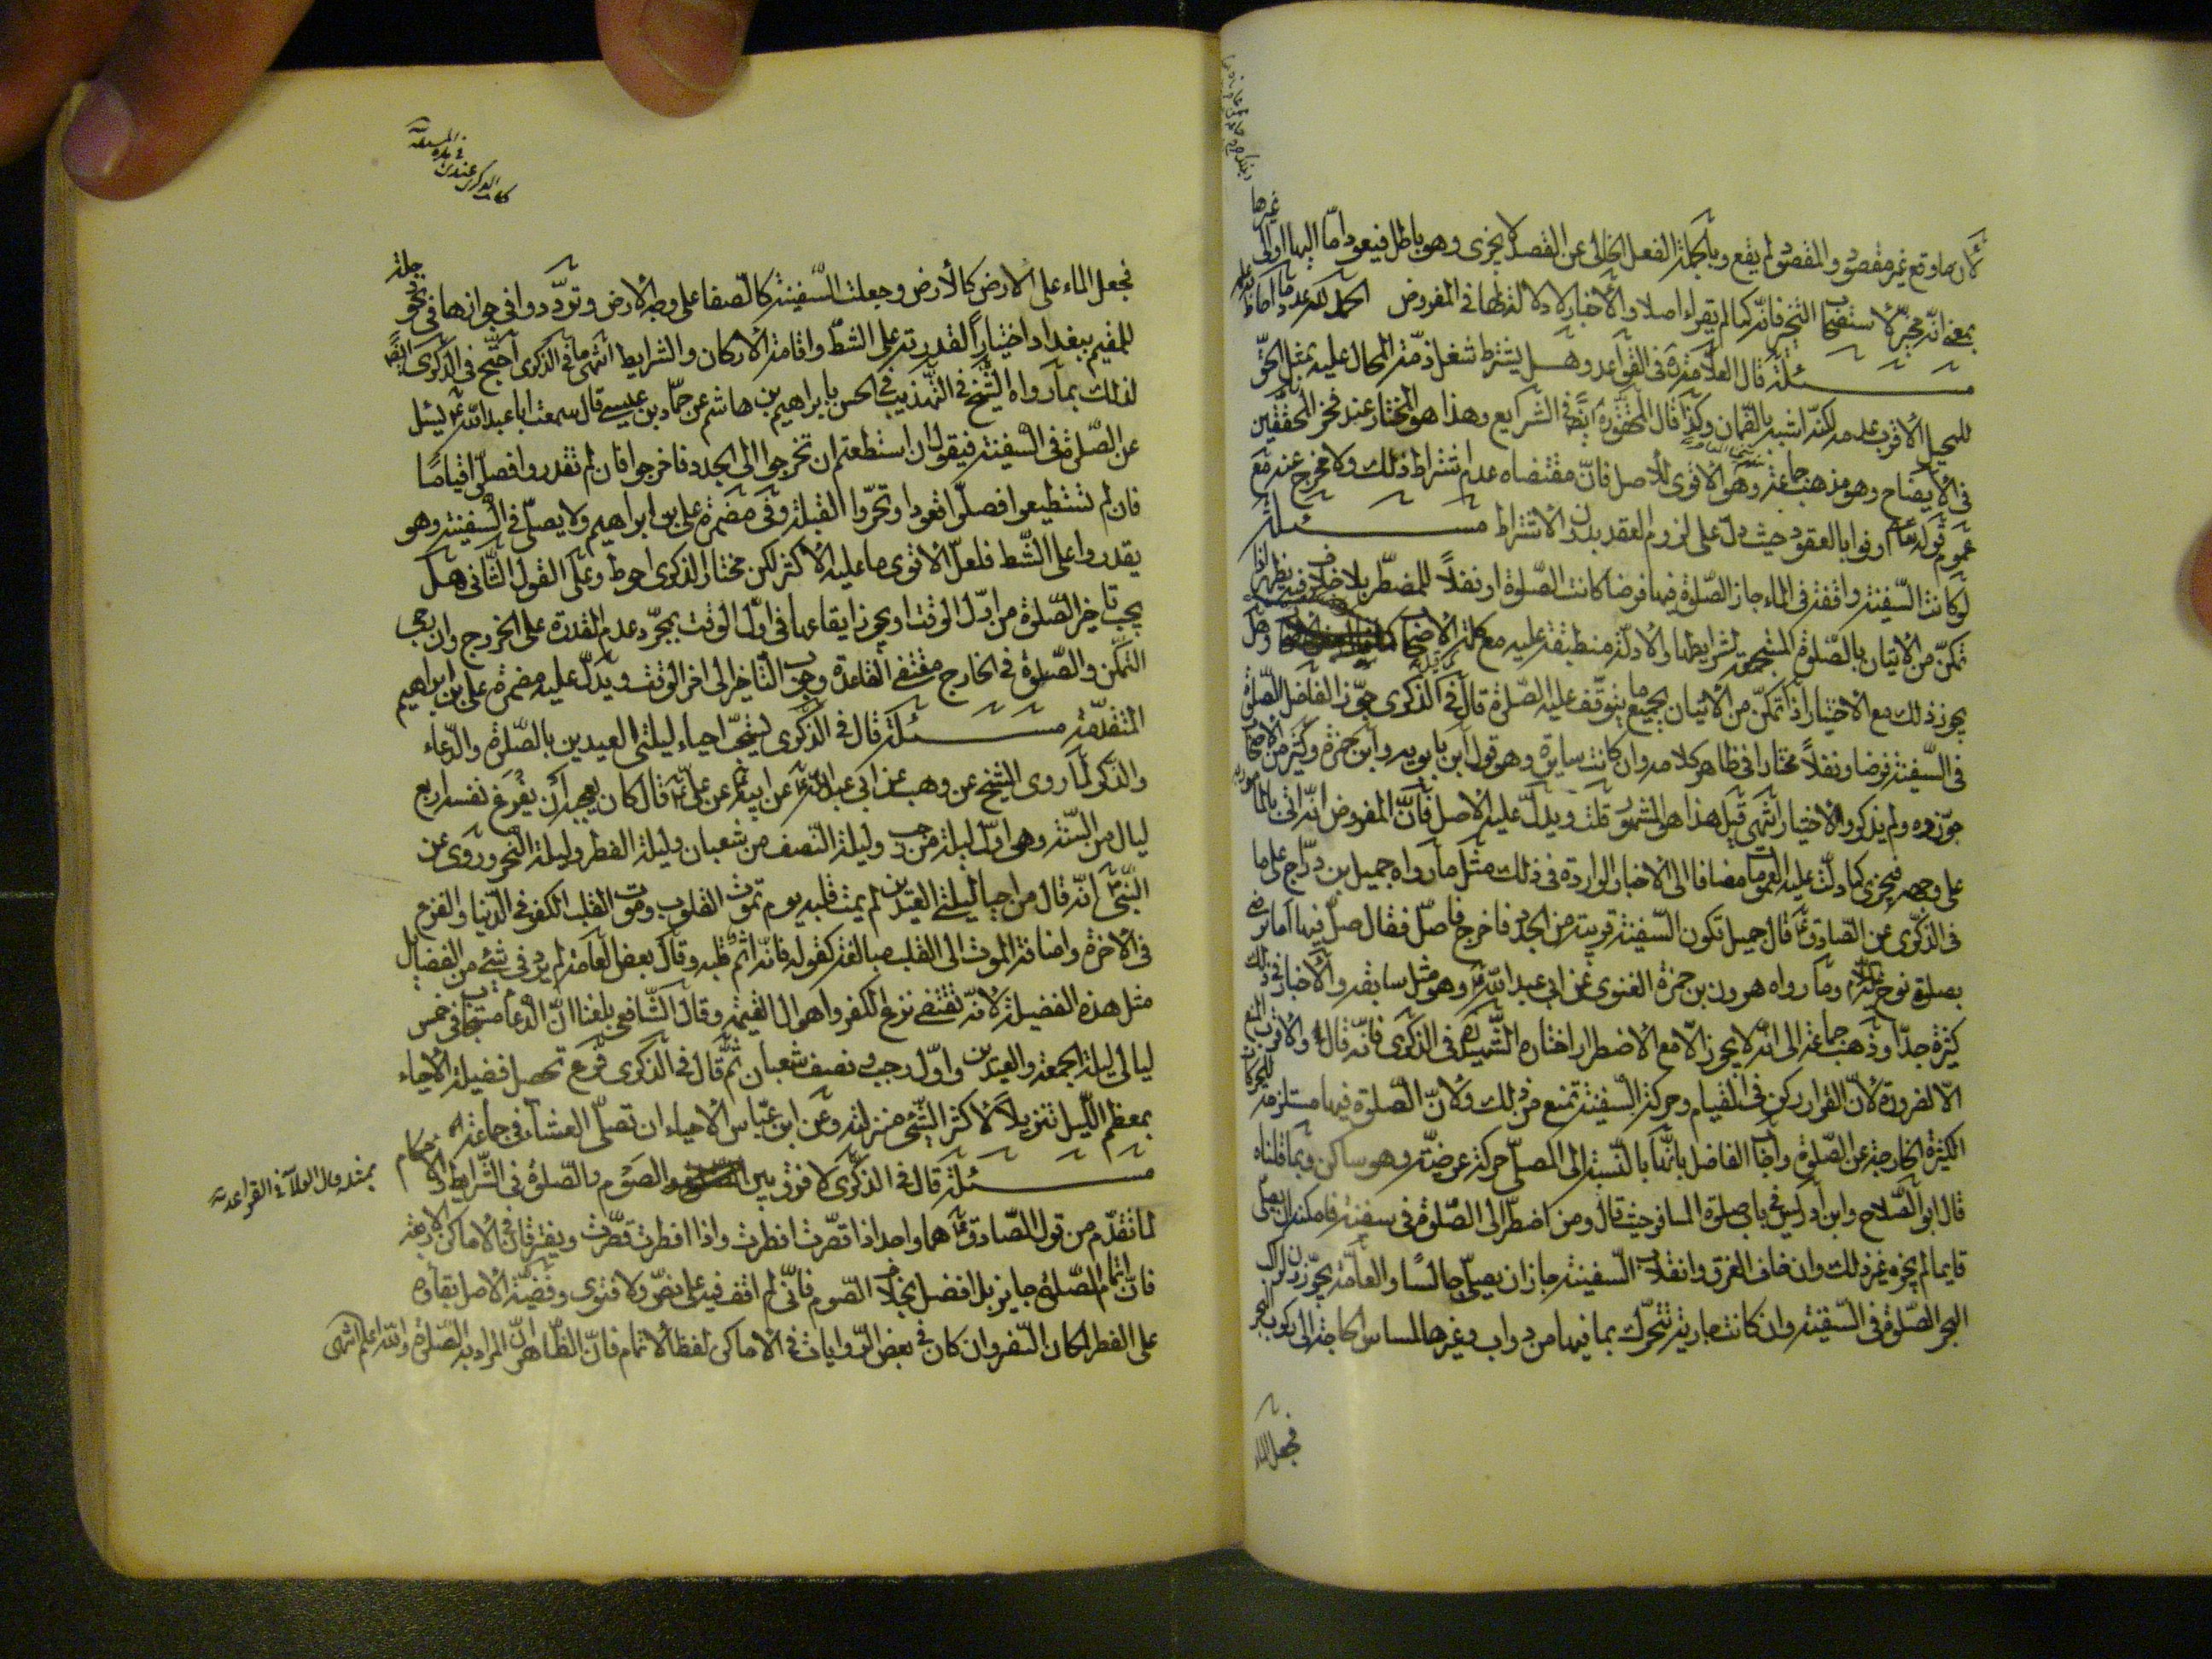 لأن ما وقع غير مقصود والمقصود لم يقع وبالجملة الفعل الخالي عن القصد لا يجزي وهو باطل فيعود امّا اليها او الى غيرها
بمعنى انّه مجز لاستصحاب فانّه كما لم يقراء اصلا والأخبار لا دلالة لها في المفروض الحمد لله
مسئلة قال العلّامة ره في القواعد وهل يشترط شغل ذمّة المحال عليه بمثل الحقّ
للمحيل الأقرب عدمه لكنّه اشبه بالضّمان وكذا قال المحقّق ره ايضا في الشرايع وهذا هو المختار عند فخر المحقّقين
في الأيضاح وهو مذهب جماعة وهو الأقوى للأصل فانّ مقتضاه عدم اشتراط ذلك ولا مخرج عنه مع
عموم قوله تعالى اوفوا بالعقود حيث دلّ على لزوم العقد بدون الاشتراط مسئلة
لو كانت السّفينة واقفة في الماء جاز الصّلوة فيها فرضا كانت الصّلوة او نفلاً للمضطّر بلا خلاف
تمكّن من الأتيان بالصّلوة المستجمعة لشرايطها والأدلّة منطبقة عليه مع كلمة الاصحاب وهل
يجوز ذلك مع الاختيار اذا تمكّن من الأتيان بجميع ما يتوقّف عليه الصّلوة قال في الذكرى جوّز الفاضل الصّلوة
في السّفينة فرضا ونفلاً مختارا في ظاهر كلامه وان كانت سايرة وهو قول ابن بابويه وابن حمزة وكثير من الأصحاب
جوّزوه ولم يذكروا الأختيار انتهى قيل هذا هو المشهور قلت ويدلّ عليه الأصل فانّ المفروض انّه اتى بالمأمور به
على وجهه فيجزي كما دلّت عليه العمومات مضافا الى الأخبار الواردة في ذلك مثل ما رواه جميل بن درّاج على ما
في الذكرى عن الصّادق ع قال جميل تكون السّفينة قريبة من الجدد فاخرج فاصلّ فقال صلّ فيها اما ترضى
بصلوة نوح وما رواه هرون بن حمزة الغنوي عن ابي عبد الله ع وهو مثل سابقه والأخبار في ذلك
كثيرة جدّا وذهب جماعة الى انّه لا يجوز الّا مع الأضطرار اختاره الشّهيد ره في الذكرى فانّه قال والأقرب المنع
الّا لضرورة لأنّ القرار ركن في القيام وحركة السّفينة تمنع من ذلك ولأنّ الصّلوة فيها مستلزمة للحركات
الكثيرة الخارجة عن الصّلوة واجاب الفاضل بانّها بالنّسبة الى المصلّي حركة عرضيّة وهو ساكن وبما قلناه
قال ابو الصّلاح وابن ادريس في باب صلوة المسافر حيث قال ومن اضطّر الى الصّلوة في سفينة فامكنه ان يصلّي
قايما لم يجزه غير ذلك وان خاف الغرق وانقلاب السّفينة جاز ان يصلّي جالسًا والعامّة يجوّزون لراكب
البحر الصّلوة في السّفينة وان كانت جارية تتحرّك بما فيها من دواب وغيرها لمساس الحاجة الى ركوب البحر
فجعل الماء
فجعل الماء على الأرض كالأرض وجعلت السّفينة كالصّفا على وجه الأرض وتردّدوا في جوازها في نحو دجلة
للمقيم ببغداد اختياراً لقدرته على الشطّ واقامة الأركان والشرايط انتهى ما في الذكرى احتجّ في الذكرى ايضًا
لذلك بما رواه الشّيخ في التّهذيب في الحسن بابراهيم بن هاشم عن حمّاد بن عيسى قال سمعت ابا عبد الله ع يسئل
عن الصّلوة في السّفينة فيقول ان استطعتم ان تخرجوا الى الجدد فاخرجوا فان لم تقدروا فصلّوا قيامًا
فان لم تستطيعوا فصلّوا قعودا وتحرّوا القبلة وفي مضمرة علي بن ابراهيم ولا يصلّى في السّفينة وهو
يقدروا على الشّط فلعلّ الأقوى ما عليه الأكثر لكن مختار الذكرى احوط وعلى القول الثّاني هل
يجب تاخير الصّلوة من اوّل الوقت او يجوز ايقاعها في اوّل الوقت بمجرّد عدم القدرة على الخروج وان رجى
التمكّن والصّلوة في الخارج مقتضى القاعدة وجوب التّاخير الى اخر الوقت ويدلّ عليه مضمرة علي بن ابراهيم
المتقدّمة مسئلة قال في الذكرى يستحبّ احياء ليلتي العيدين بالصّلوة والدّعاء
والذكر لما روى الشيخ عن وهب عن ابي عبد الله ع عن ابيه ع عن علي ع قال كان يعجبه أن يفرغ نفسه اربع
ليال من السّنة وهي اوّل ليلة من رجب وليلة النّصف من شعبان وليلة الفطر وليلة النّحر وروى عن
النّبي انّه قال من احيا ليلتي العيدين لم يمت قلبه يوم تموت القلوب وموت القلب الكفر في الدّنيا والفزع
في الأخرة واضافة الموت الى القلب مبالغة كقوله فانّه اثم قلبه وقال بعض العامّة لم يرد في شئ من الفضايل
مثل هذه الفضيلة لأنّه تقتضي نزع الكفر واهوال القيمة وقال الشّافعي بلغنا انّ الدّعا مستجاب في خمس
ليالي ليلة الجمعة والعيدين واوّل رجب ونصف شعبان ثمّ قال في الذكرى فرع تحصل فضيلة الأحياء
بمعظم اللّيل تنزيلاً لأكثر الشّئ منزلته وعن ابن عبّاس الأحياء ان تصلّى العشآء في جماعة اه
مسئلة قال في الذكرى لا فرق بين الصّوم والصّلوة في الشّرايط والاحكام
بمثله قال العلا في القواعد
لما تقدّم من قول الصّادق ع هما واحد اذا قصّرت افطرت واذا افطرت قصّرت ويفترقان في الأماكن الأربعة
فانّ اتمام الصّلوة جايز بل افضل بخلاف الصّوم فانّي لم اقف فيه على نصّ ولا فتوى وقضيّة الأصل بقاؤه
على الفطر لمكان السّفر وان كان في بعض الرّوايات في الأماكن لفظ الأتمام فانّ الظّاهر انّ المراد به الصّلوة والله اعلم انتهى